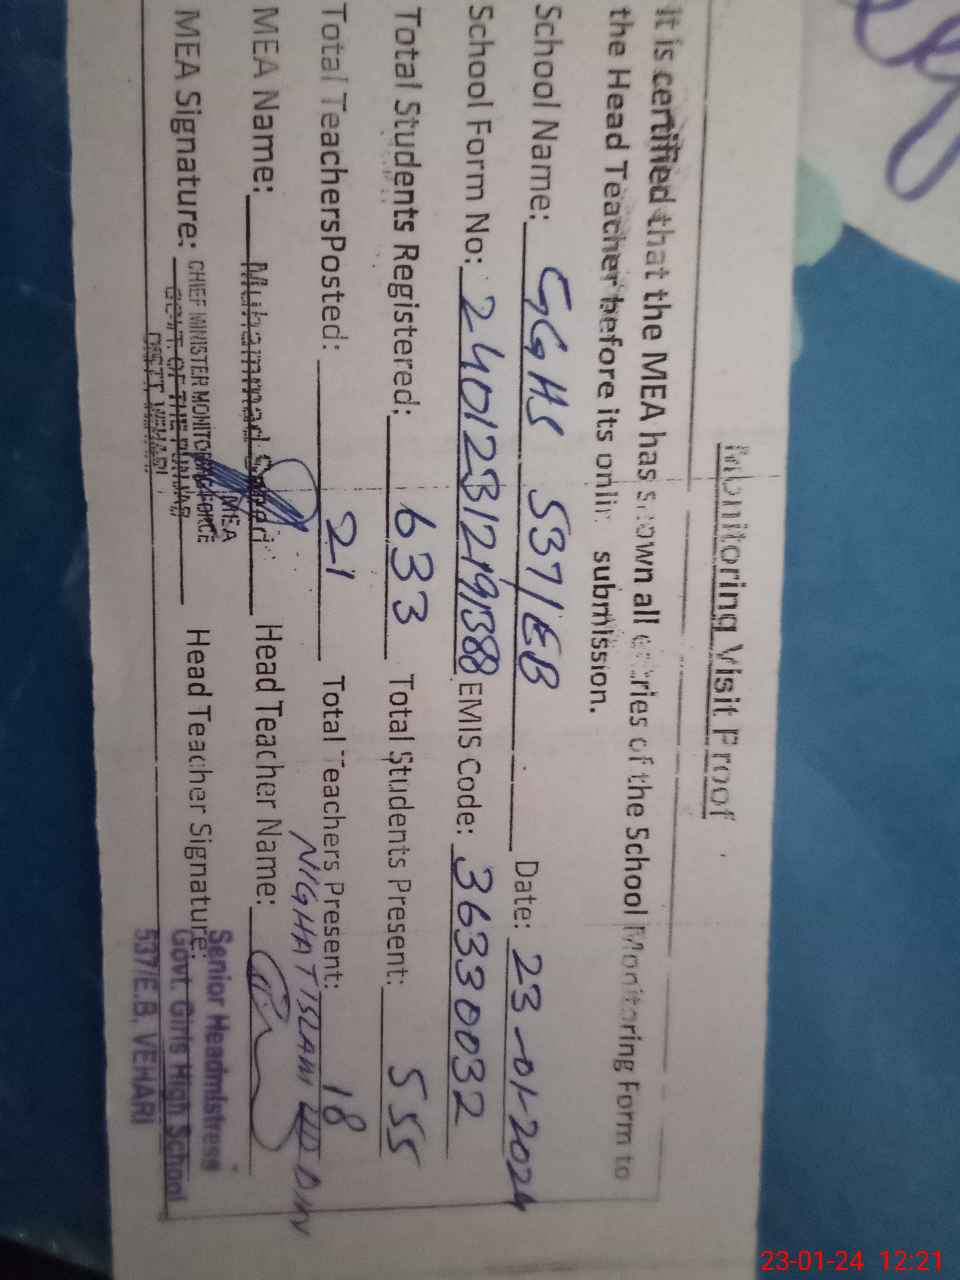 Monitoring Visit Proof
It is certified that the MEA has shown all entries of the School Monitoring Form to
the Head Teacher before its online submission.
School Name: GGHS 537/EB Date: 23-01-2024
School Form No: 24012312191388 EMIS Code: 36330032
Total Students Registered: 633 Total Students Present: 555
Total TeachersPosted: 21 Total Teachers Present: 18
NIGHAT ISLAM UD DIN
MEA Name: Muhammad Saeed Head Teacher Name:
MEA
MEA Signature: CHIEF MINISTER MONITORING FORCE Head Teacher Signature:
GOVT. OF THE PUNJAB
DISTT. VEHARI
Senior Headmistress
Govt. Girls High School
537/E.B. VEHARI
23-01-24 12:21